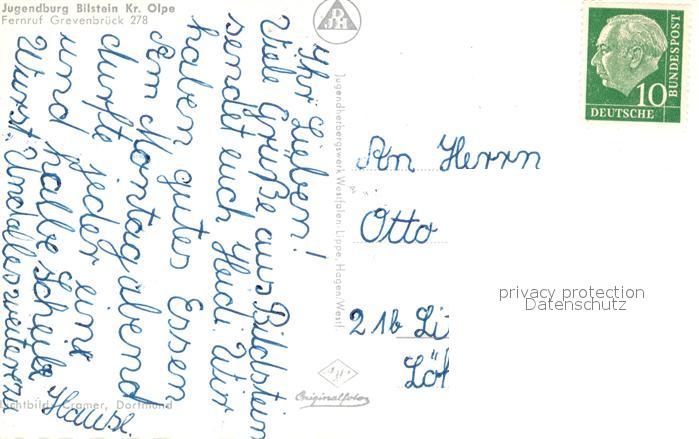 Jugendburg Bilstein Kr. Olpe
Fernruf Grevenbrück 278
Ihr Lieben!
Viele Grüße aus Bildstein
sendet euch Heidi. Wir
haben gutes Essen
Am Montag abend
durfte jeder eine
und halbe Scheibe
Wurst. Und alles weitere zu
Hause.
Lichtbild: Cramer, Dortmund
Jugendherbergswerk Westfalen-Lippe, Hagen/Westf
Originalfoto
DEUTSCHE
BUNDESPOST
10
An Herrn
Otto
21b Li
Löh
privacy protection
Datenschutz